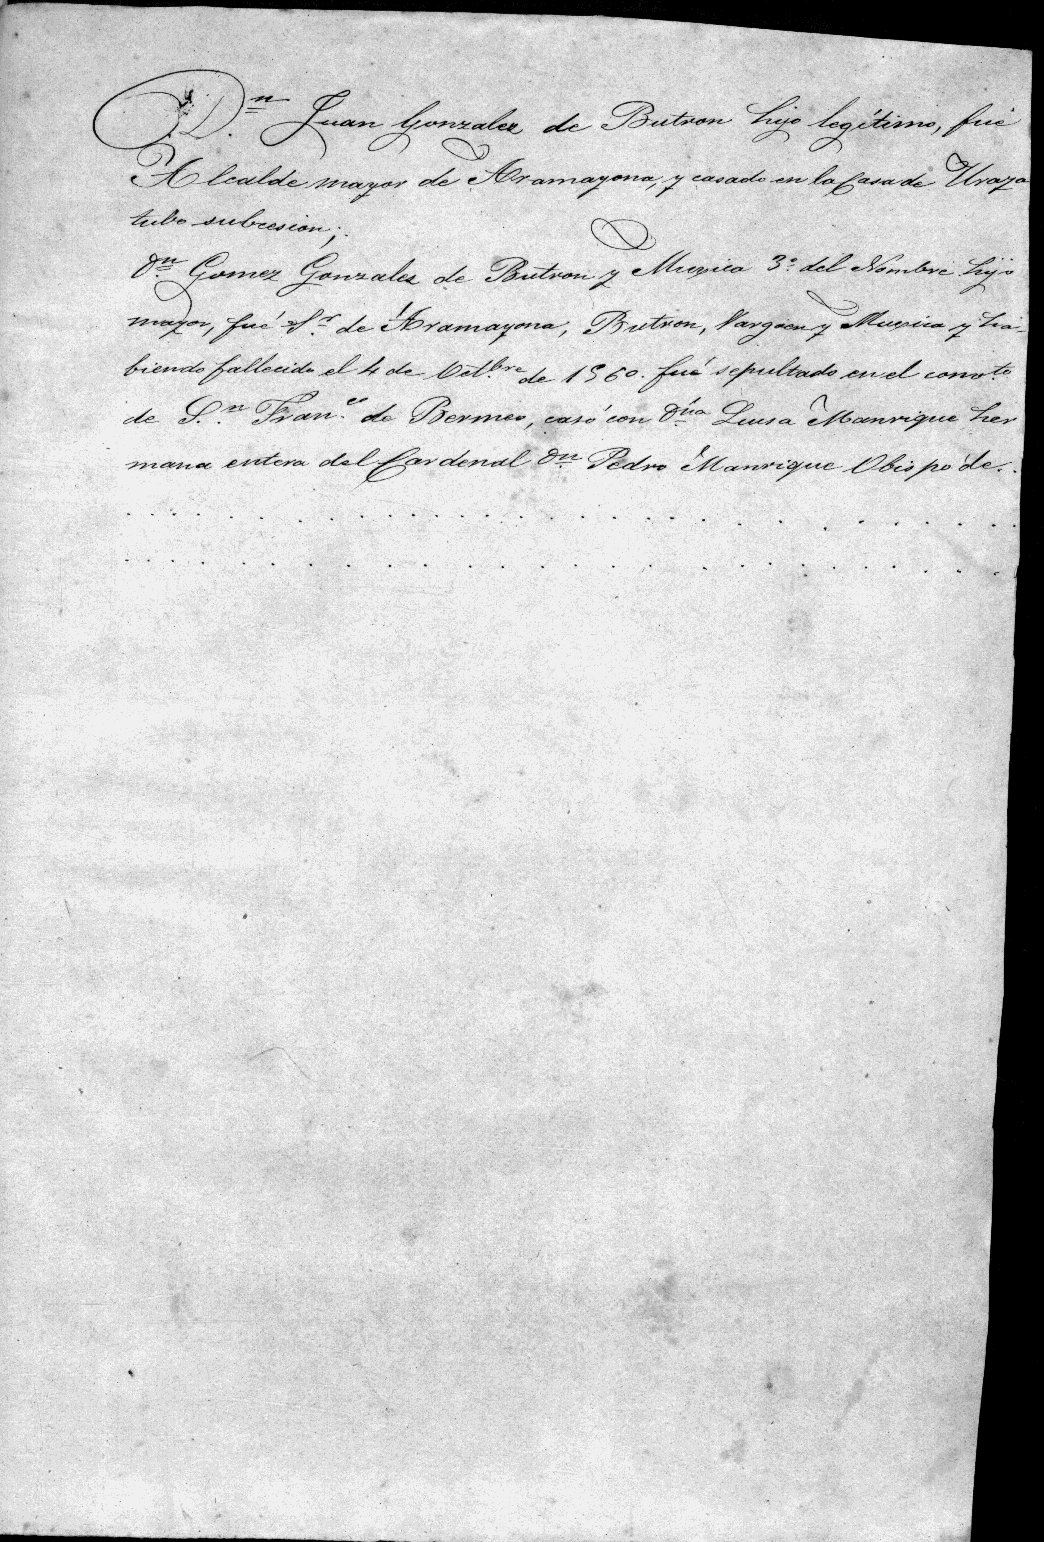 D.ⁿ Juan Gonzalez de Butron hijo legítimo, fué
Alcalde mayor de Aramayona, y casado en la Casa de Uraza
tubo subcesion;.
Dⁿ Gomez Gonzalez de Butron y Muxica 3º del Nombre hijo
mayor, fué S.ʳ de Aramayona, Butron, y Muxica y ha-
biendo fallecido el 4 de Octᵇʳᵉ de 1560. fué sepultado en el convᵗᵒ
de S.ⁿ Fran.ᶜᵒ de Bermeo, casó con Dñᵃ Luisa Manrique her
mana entera del Cardenal Dⁿ Pedro Manrique Obispo de. .
. . . . . . . . . . . . . . . . . . . . . . . . . . .
. . . . . . . . . . . . . . . . . . . . . . . . . . .